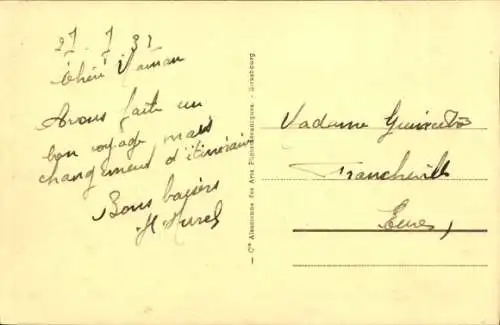 27. 7. 32
Chère Maman
Avons faite un
bon voyage mais
changement d'itinéraire
Bons baisers
Madame
Francheville
Eure
— Cie Alsacienne des Arts Photomécaniques, - Strasbourg